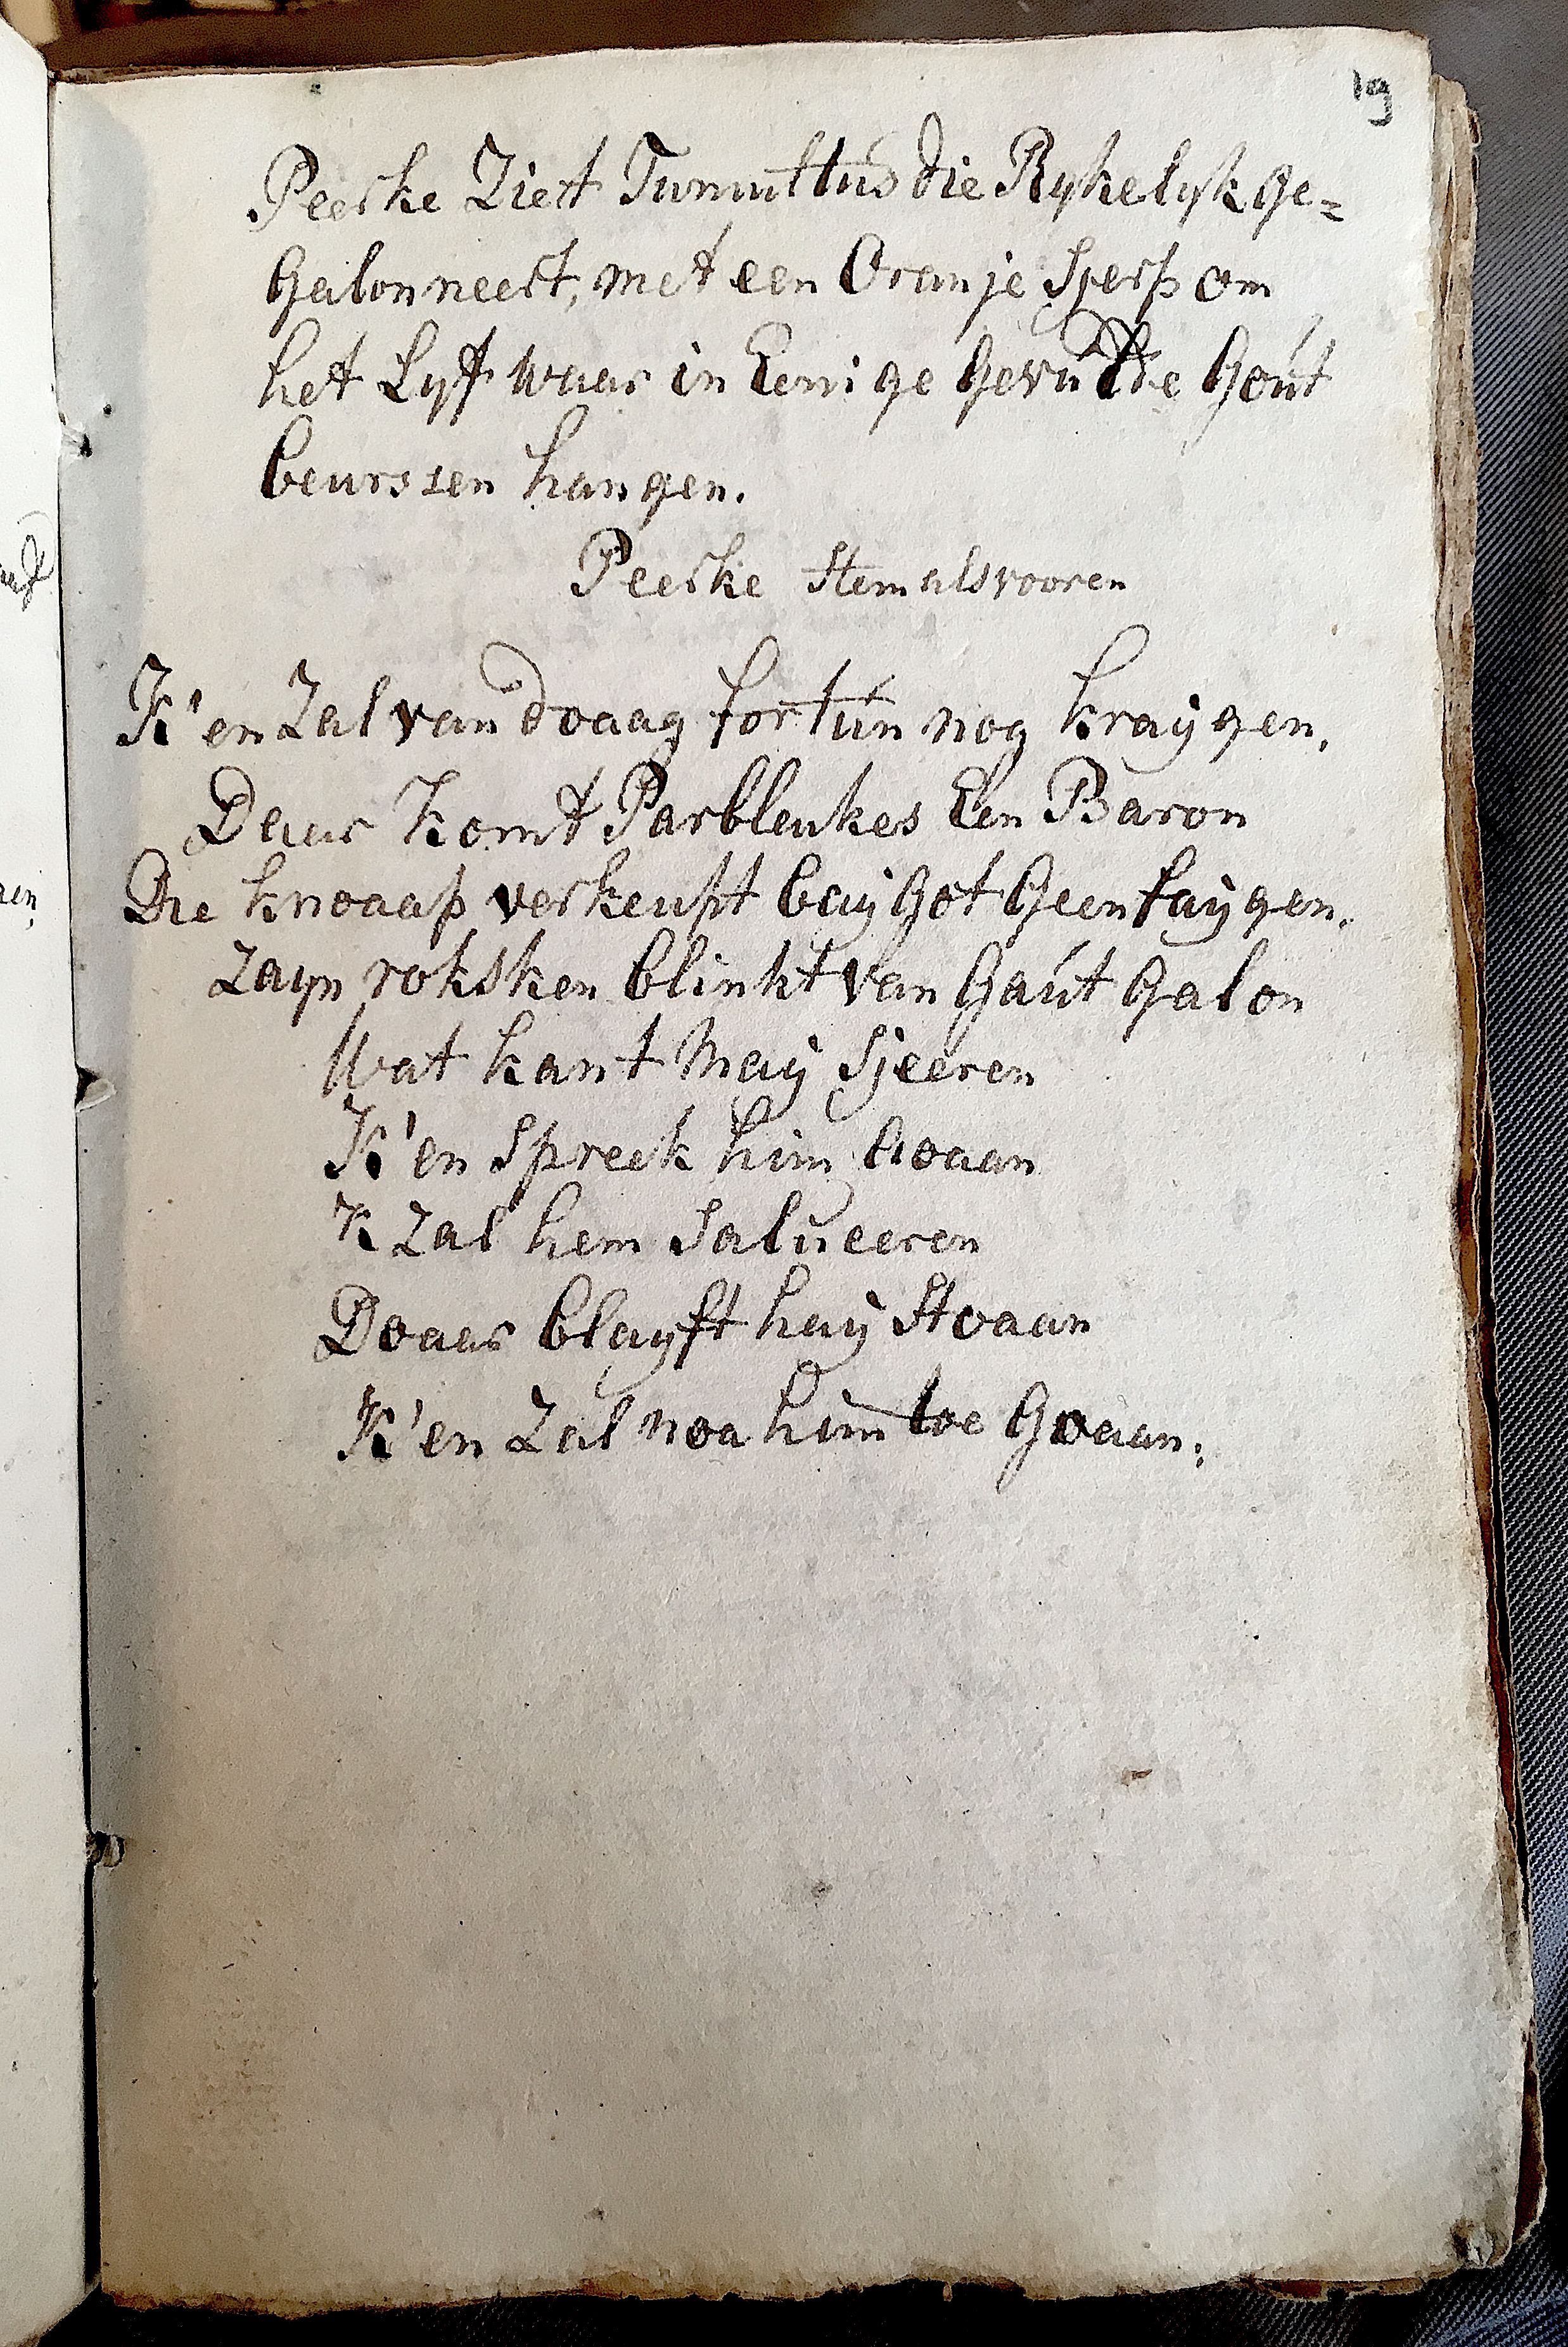 19
Peerke Ziet Tumultus die Rykelyk ge=
Galonneert, met een Oranje Sjerp om
het Lyf waar in Eenige Gevulde Gout
beurssen hangen.
Peerke Stem als vooren
K'en Zal van doaag fortun nog kraygen,
Daar komt Parbleukes Een Baron
Die knoaap verkeupt bay Got Geen faygen.
Zayn roksken blinkt van Gaut Galon
Wat kant may Sjeeren
K'en Spreek him Aoaan
K Zal hem Salueeren
Doaar blayft hay Stoaan
K'en Zal noa him toe Goaan.